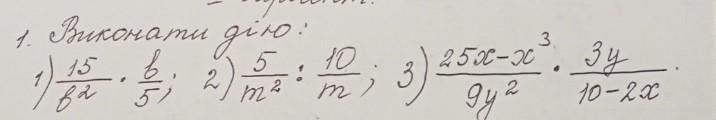 1. Виконати дію:
1) 15/b² · b/5; 2) 5/m² : 10/m; 3) (25x-x³)/(9y²) · 3y/(10-2x).